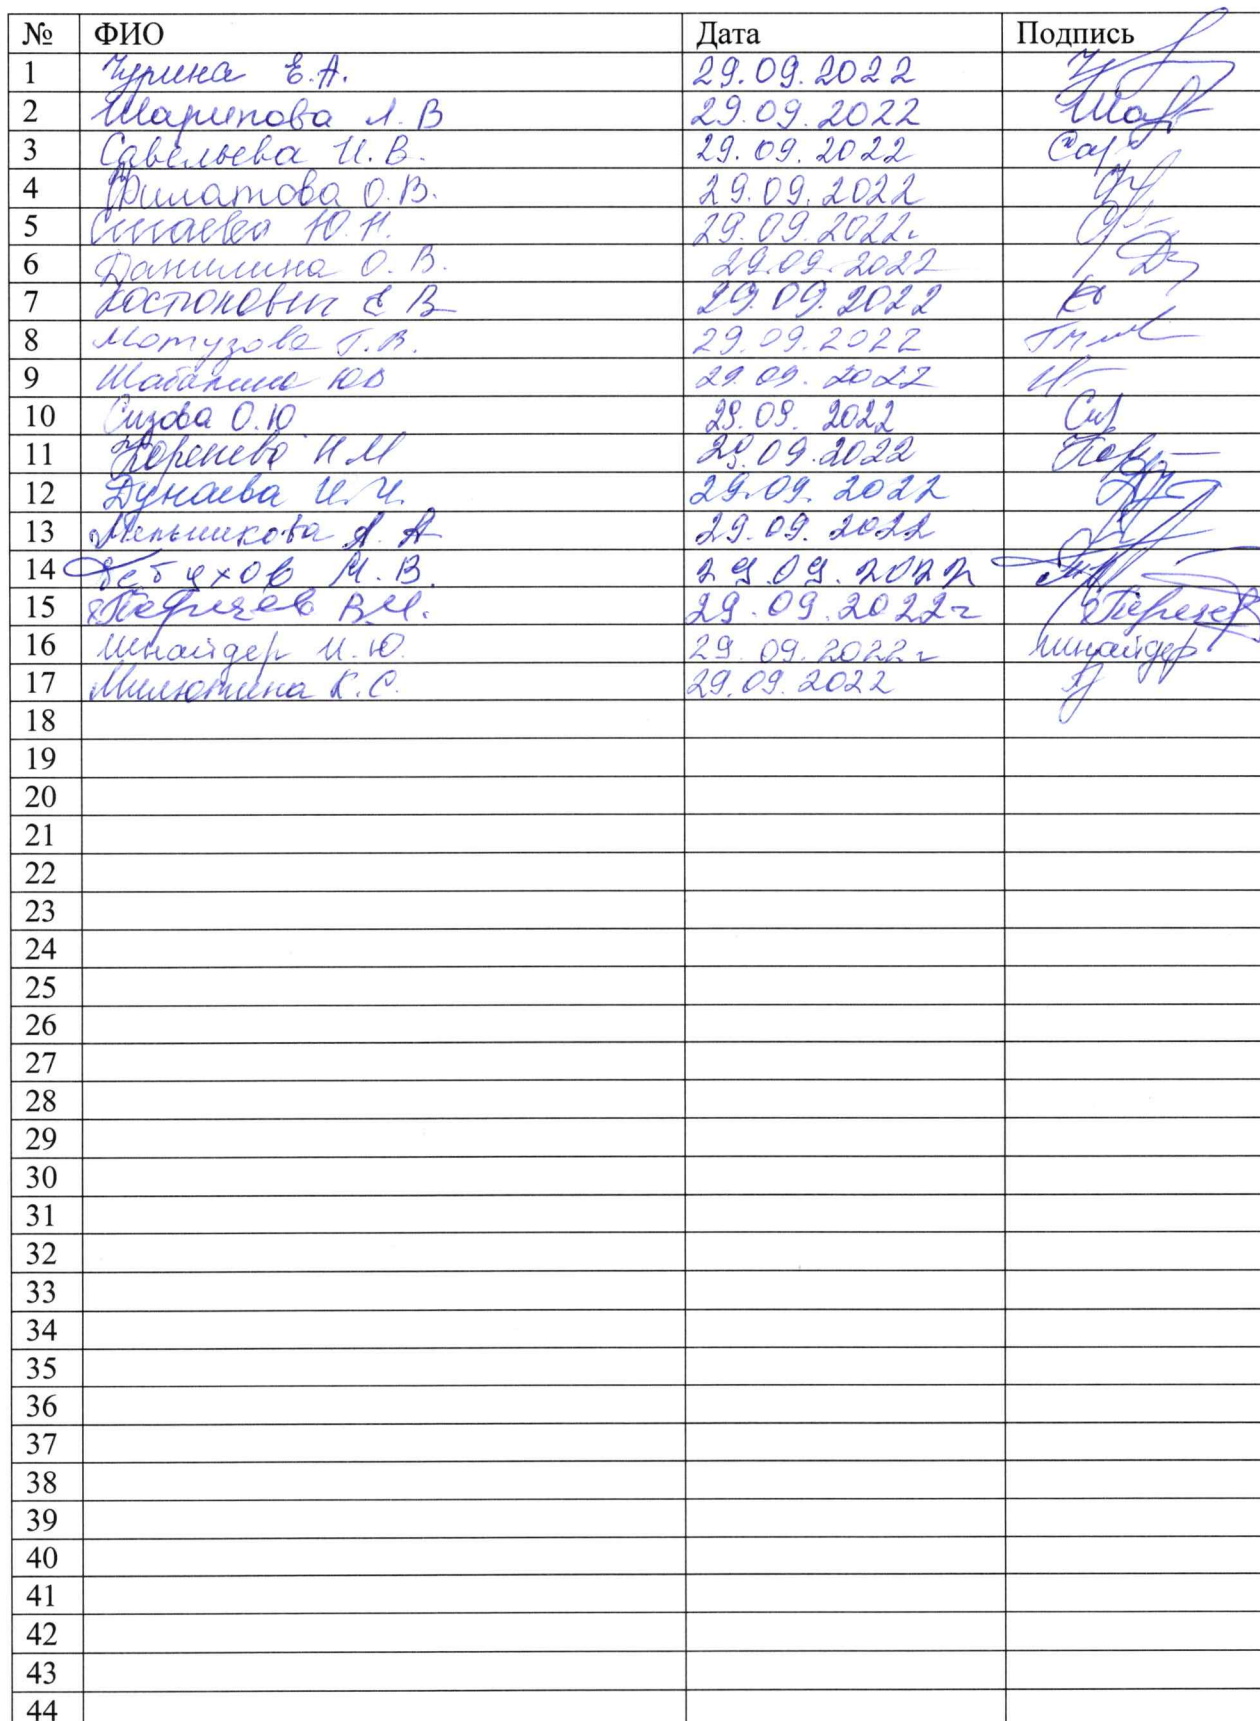 № ФИО Дата Подпись
1 Чурина Е.А. 29.09.2022
2 Шарипова Л.В 29.09.2022 Шар
3 Савельева И.В. 29.09.2022 Сав
4 Филатова О.В. 29.09.2022
5 Ю.Н. 29.09.2022г
6 Данилина О.В. 29.09.2022
7 Костюкович Е В 29.09.2022
8 Мотузова Т.В. 29.09.2022
9 Шабалина ЮВ 29.09.2022
10 Сизова О.Ю 29.09.2022
11 Коренева Н М 29.09.2022
12 Дунаева И.И. 29.09.2022
13 Мельникова А. А 29.09.2022
14 М.В. 29.09.2022
15 В.И. 29.09.2022г
16 Шнайдер И.Ю. 29.09.2022г Шнайдер
17 Милютина К.С. 29.09.2022
18
19
20
21
22
23
24
25
26
27
28
29
30
31
32
33
34
35
36
37
38
39
40
41
42
43
44